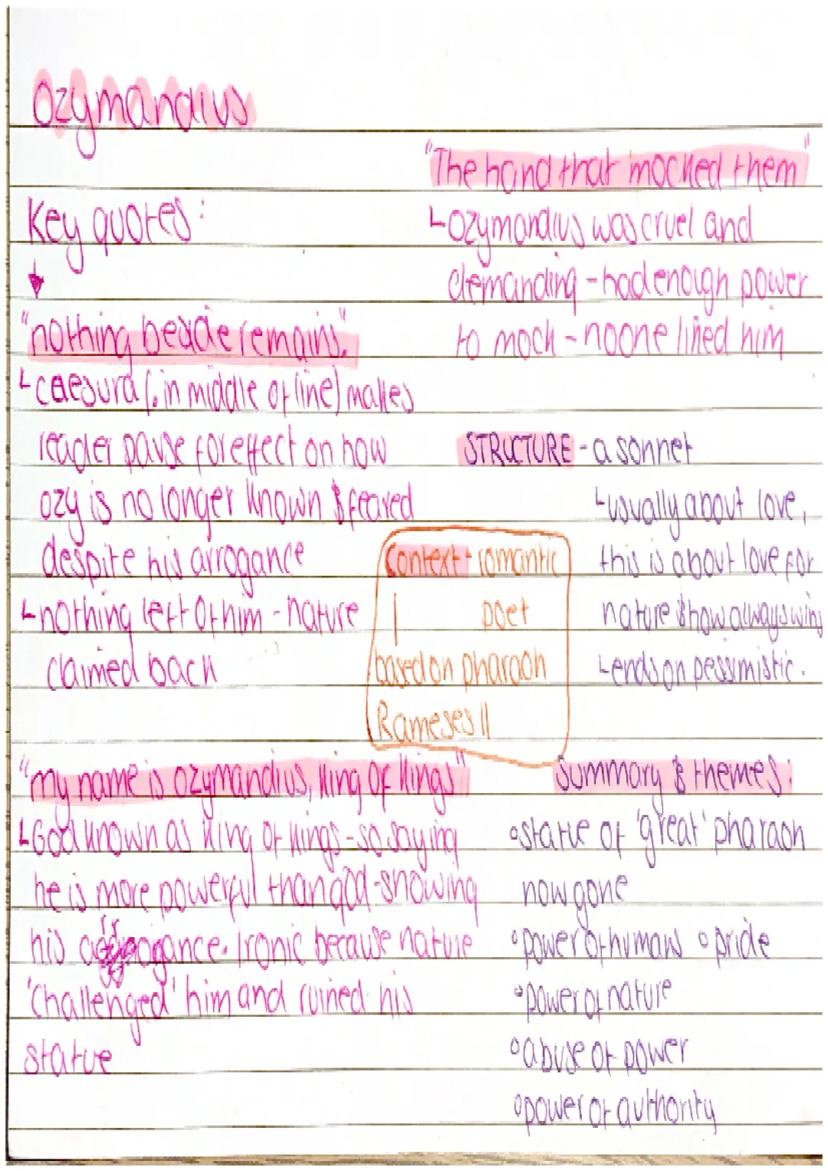 Ozymandius
Key quotes:
"nothing beside remains."
caesura (. in middle of line) makes
reader pause for effect on how
ozy is no longer known & feared
despite his arrogance
nothing left of him - nature
claimed back
"my name is ozymandius, king of kings"
God known as king of kings - so saying
he is more powerful than god - showing
his arrogance. Ironic because nature
'challenged' him and ruined his
statue
"The hand that mocked them"
ozymandius was cruel and
demanding - had enough power
to mock - noone liked him
STRUCTURE - a sonnet
usually about love,
this is about love for
nature & how always wins
ends on pessimistic.
Context - romantic
poet
based on pharaoh
Rameses II
Summary & themes:
statue of 'great' pharaoh
now gone
power of humans pride
power of nature
abuse of power
power of authority